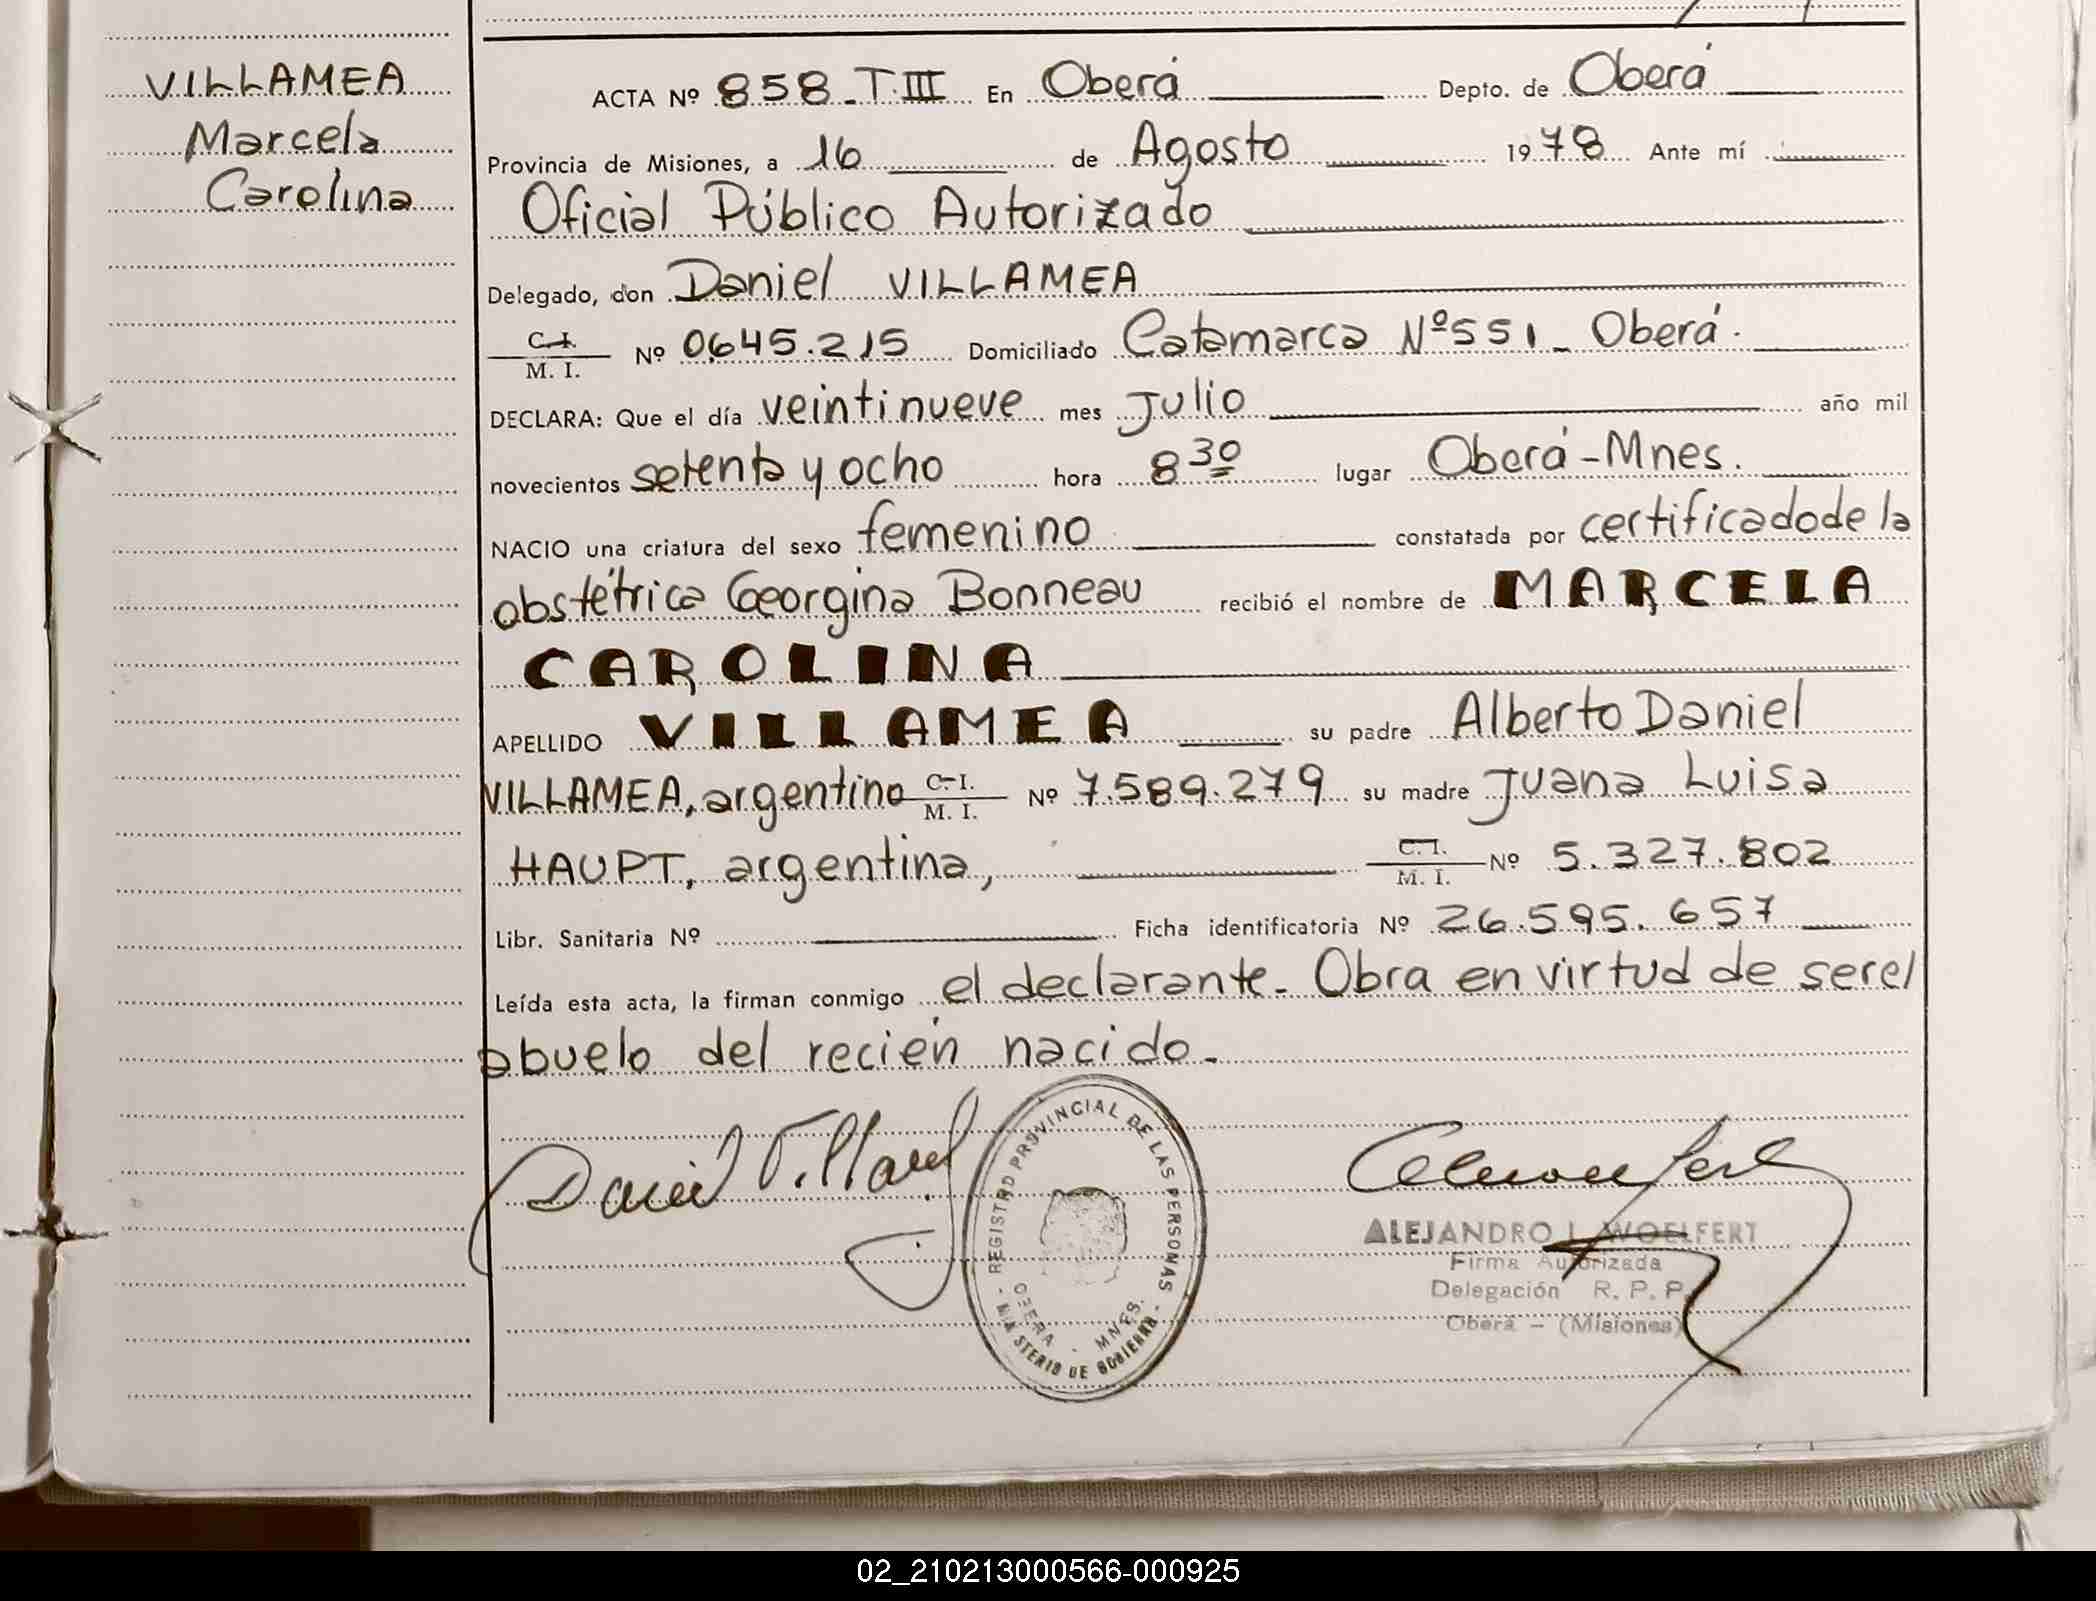 VILLAMEA
Marcela
Carolina
ACTA Nº 858_T.III En Oberá Depto. de Oberá
Provincia de Misiones, a 16 de Agosto 1978 Ante mí
Oficial Público Autorizado
Delegado, don Daniel VILLAMEA
C.I. M. I. Nº 0645.215 Domiciliado Catamarca Nº551_ Oberá.
DECLARA: Que el día veintinueve mes Julio año mil
novecientos setenta y ocho hora 8 30 lugar Oberá-Mnes.
NACIO una criatura del sexo femenino constatada por certificado de la
obstétrica Georgina Bonneau recibió el nombre de MARCELA
CAROLINA
APELLIDO VILLAMEA su padre Alberto Daniel
VILLAMEA, argentino C.I. M. I. Nº 7.589.279 su madre Juana Luisa
HAUPT, argentina, C.I. M. I. Nº 5.327.802
Libr. Sanitaria Nº Ficha identificatoria Nº 26.595.657
Leída esta acta, la firman conmigo el declarante_ Obra en virtud de ser el
abuelo del recién nacido_
REGISTRO PROVINCIAL DE LAS PERSONAS
OBERA - MNES.
- MINISTERIO DE GOBIERNO -
ALEJANDRO L. WOELFERT
Firma Autorizada
Delegación R. P. P.
Oberá - (Misiones)
02_210213000566-000925